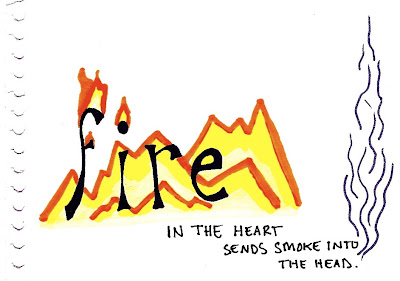 fire
IN THE HEART
SENDS SMOKE INTO
THE HEAD.